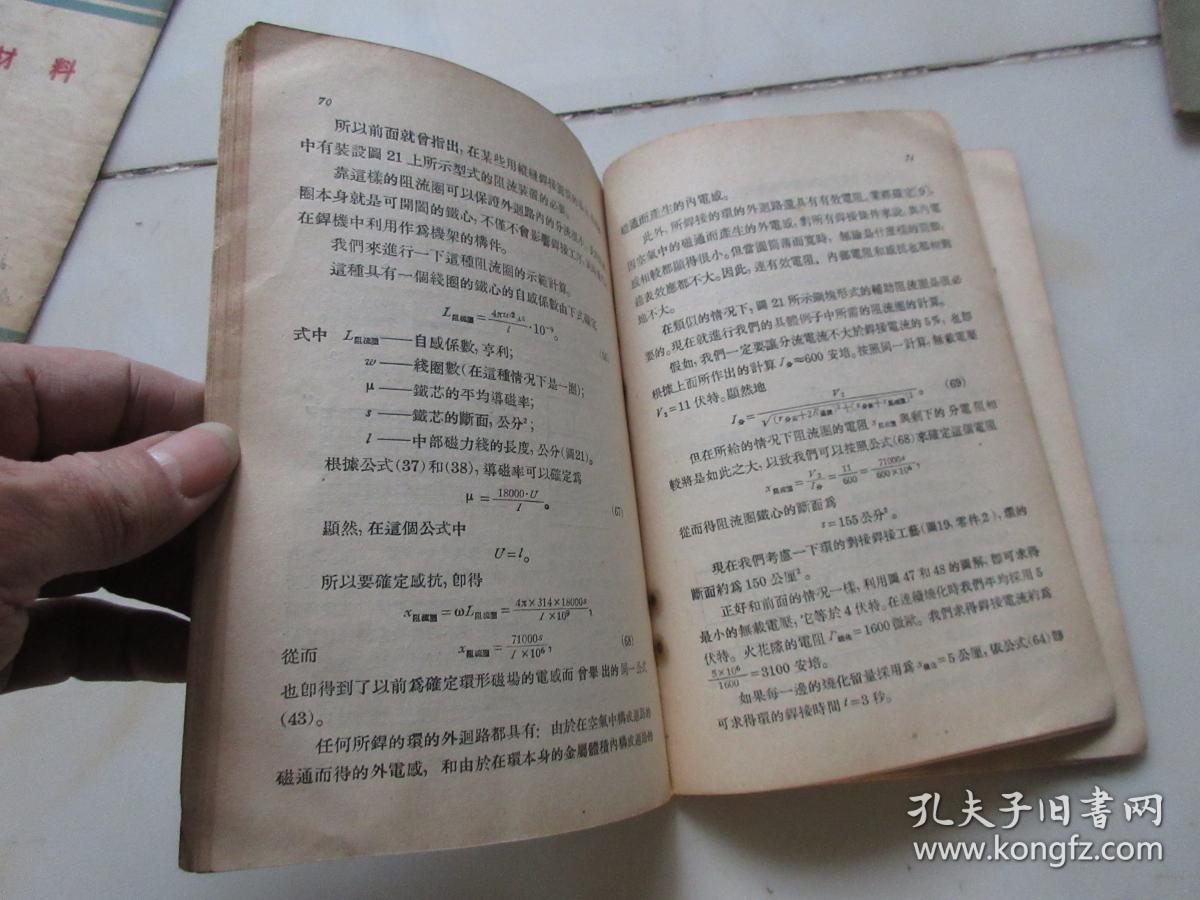 材料
70
所以前面就曾指出,在某些用縱縫銲接
中有裝設圖 21 上所示型式的阻流裝置的必要。
靠這樣的阻流圈可以保證外迴路內的分流很小。
圈本身就是可開闔的鐵心,不僅不會影響銲接工序,
在銲機中利用作爲機架的構件。
我們來進行一下這種阻流圈的示範計算。
這種具有一個綫圈的鐵心的自感係數由下式確定
L阻流圈=4πw²μs/l·10⁻⁹。
式中 L阻流圈——自感係數,亨利;
w——綫圈數(在這種情况下是一圈);
μ——鐵芯的平均導磁率;
s——鐵芯的斷面,公分²;
l——中部磁力綫的長度,公分(圖21)。
根據公式(37)和(38),導磁率可以確定爲
μ=18000·U/I。 (67)
顯然,在這個公式中
U=l。
所以要確定感抗,卽得
x阻流圈=ωL阻流圈=4π×314×18000s/I×10⁹,
從而 x阻流圈=71000s/I×10⁶, (68)
也卽得到了以前爲確定環形磁場的電感而曾舉出的同一公式
(43)。
任何所銲的環的外迴路都具有:由於在空氣中構成迴路的
磁通而得的外電感,和由於在環本身的金屬體積內構成迴路的
71
磁通而產生的內電感。
此外,所銲接的環的外迴路還具有有效電阻,
因空氣中的磁通而產生的外電感,對所有銲接條件來說,與內電
感相較都顯得很小。但當圓筒薄而寬時,無論是什麼樣的
表效應都不大。因此,連有效電阻、內部電阻和感抗也都相對
地不大。
在類似的情况下,圖 21 所示鋼塊形式的輔助阻流圈是很必
要的。現在就進行我們的具體例子中所需的阻流圈的計算。
假如,我們一定要讓分流電流不大於銲接電流的5%,也卽
根據上面所作出的計算 I分≈600 安培。按照同一計算,無載電壓
V₂=11 伏特。顯然地
(69)
但在所給的情况下阻流圈的電阻 x阻流圈 與剩下的分電阻相
較將是如此之大,以致我們可以按照公式(68)來確定這個電阻
x阻流圈=V₂/I分=11/600=71000s/600×10⁶,
從而得阻流圈鐵心的斷面爲
s=155公分²。
現在我們考慮一下環的對接銲接工藝(圖19,零件2),環的
斷面約爲 150 公厘²。
正好和前面的情况一樣,利用圖 47 和 48 的圖解,卽可求得
最小的無載電壓,它等於 4 伏特。在連續燒化時我們平均採用 5
伏特。火花隙的電阻 =1600微歐。我們求得銲接電流約爲
5×10⁶/1600=3100 安培。
如果每一邊的燒化留量採用爲 =5 公厘,依公式(64)卽
可求得環的銲接時間 t=3 秒。
孔夫子旧书网
www.kongfz.com